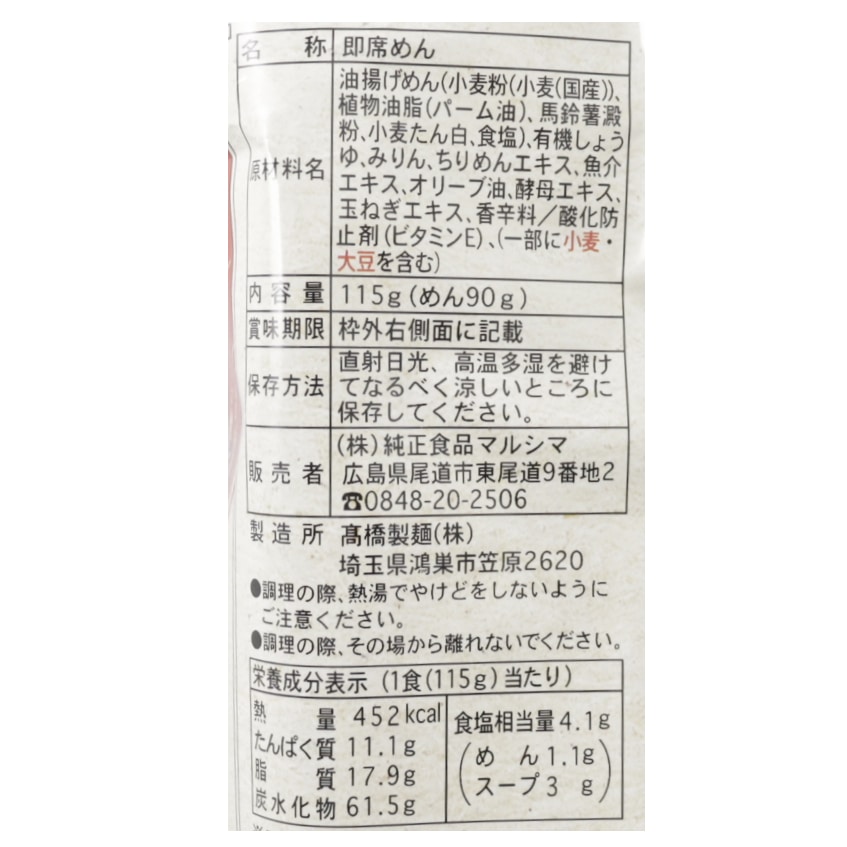 名称 即席めん
原材料名 油揚げめん(小麦粉(小麦(国産))、
植物油脂(パーム油)、馬鈴薯澱
粉、小麦たん白、食塩)、有機しょう
ゆ、みりん、ちりめんエキス、魚介
エキス、オリーブ油、酵母エキス、
玉ねぎエキス、香辛料／酸化防
止剤(ビタミンE)、(一部に小麦・
大豆を含む)
内容量 115g(めん90g)
賞味期限 枠外右側面に記載
保存方法 直射日光、高温多湿を避け
てなるべく涼しいところに
保存してください。
販売者 (株)純正食品マルシマ
広島県尾道市東尾道9番地2
☎0848-20-2506
製造所 髙橋製麺(株)
埼玉県鴻巣市笠原2620
●調理の際、熱湯でやけどをしないように
ご注意ください。
●調理の際、その場から離れないでください。
栄養成分表示(1食(115g)当たり)
熱量 452kcal
たんぱく質 11.1g
脂質 17.9g
炭水化物 61.5g
食塩相当量4.1g
(めん1.1g
スープ3g)